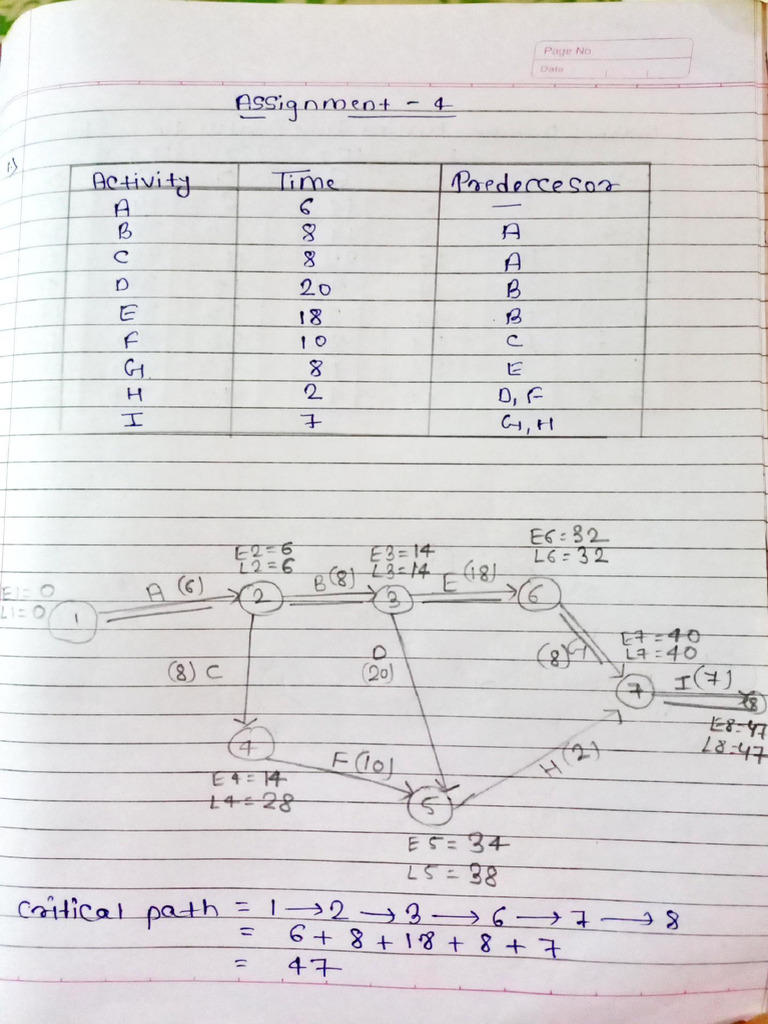 Page No
Date
Assignment - 4
1.)
Activity Time Predeccesor
A 6 —
B 8 A
C 8 A
D 20 B
E 18 B
F 10 C
G 8 E
H 2 D, F
I 7 G, H
E1=0
L1=0
1
A (6)
E2=6
L2=6
2
B(8)
E3=14
L3=14
3
E (18)
E6=32
L6=32
6
(8) C
D
(20)
(8)G
E7=40
L7=40
7
I(7)
8
E8=47
L8=47
4
E4=14
L4=28
F(10)
5
H(2)
E5=34
L5=38
critical path = 1 → 2 → 3 → 6 → 7 → 8
= 6+8+18+8+7
= 47